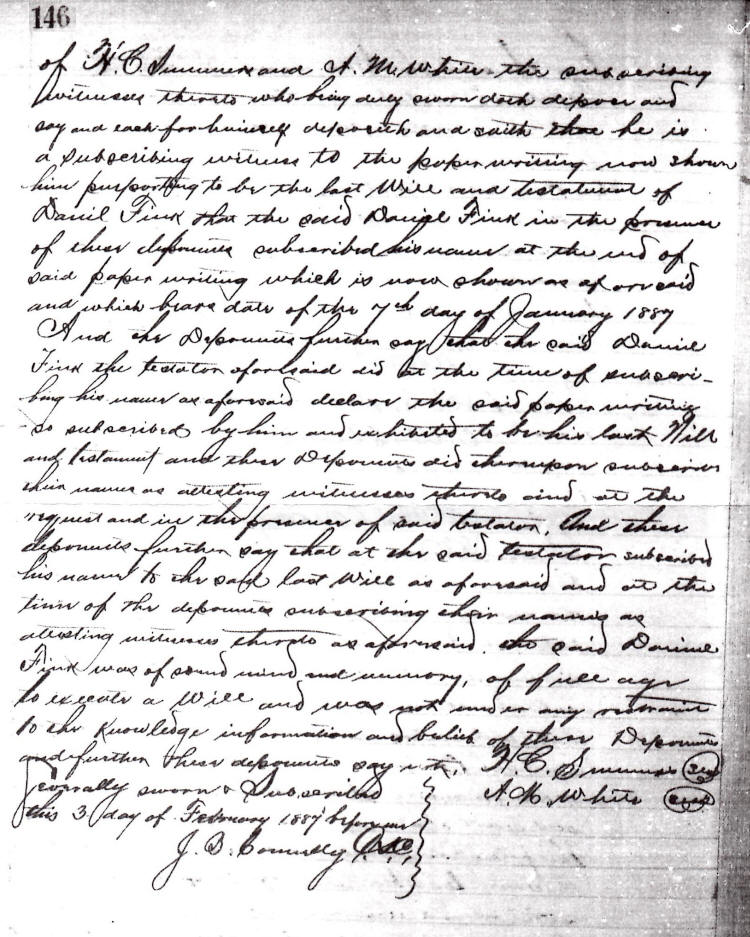 146
of H. C. Summers and A. M. White the subscribing
witnesses thereto who being duly sworn doth depose and
say and each for himself deposeth and saith that he is
a subscribing witness to the paper writing now shown
him purporting to be the last Will and testament of
Daniel Fink that the said Daniel Fink in the presence
of these deponents subscribed his name at the end of
said paper writing which is now shown as aforesaid
and which bears date of the 7th day of January 1887
And the Deponents further say that the said Daniel
Fink the testator aforesaid did at the time of subscri-
bing his name as aforesaid declare the said paper writing
so subscribed by him and exhibited to be his last Will
and testament and these Deponents did thereupon subscribe
their names as attesting witnesses thereto and at the
request and in the presence of said testator. And these
deponents further say that at the said testator subscribed
his name to the said last Will as aforesaid and at the
time of the deponents subscribing their names as
attesting witnesses thereto as aforesaid the said Daniel
Fink was of sound mind and memory, of full age
to execute a Will and was not under any restraint
to the Knowledge information and belief of these Deponents
and further these deponents say not. H. C. Summers Seal
Severally sworn & Subscribed A. M. White Seal
this 3 day of February 1887 before me
J. B. Connelly